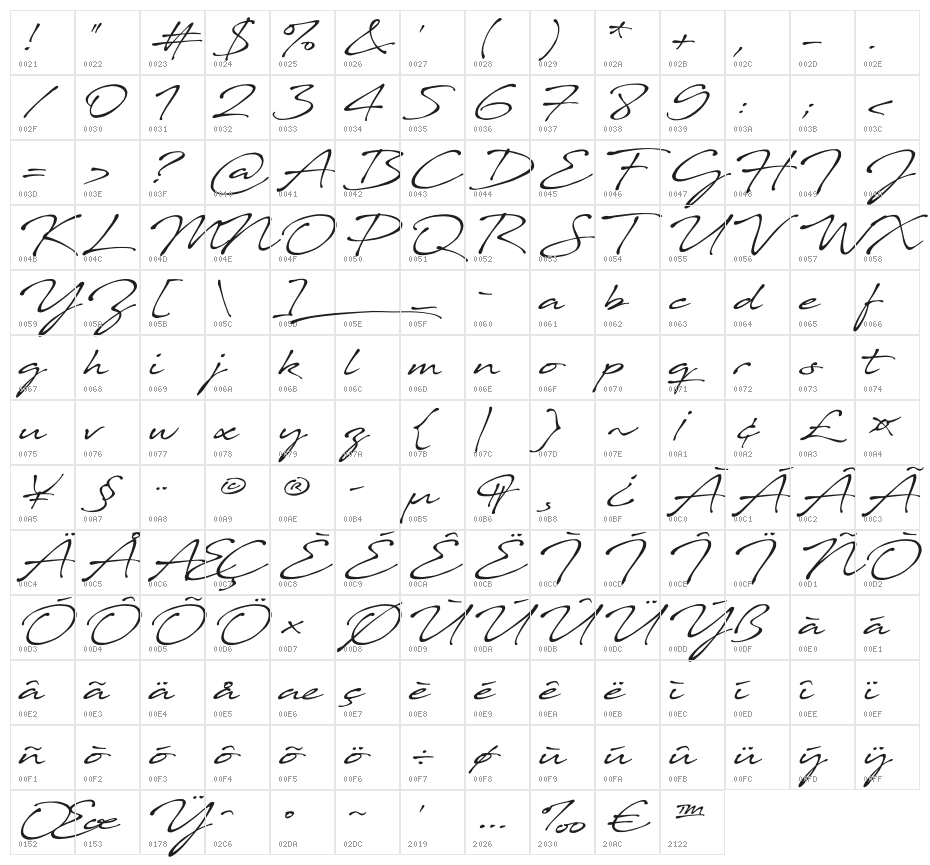 ! " # $ % & ' ( ) * + , - .
0021 0022 0023 0024 0025 0026 0027 0028 0029 002A 002B 002C 002D 002E
/ 0 1 2 3 4 5 6 7 8 9 : ; <
002F 0030 0031 0032 0033 0034 0035 0036 0037 0038 0039 003A 003B 003C
= > ? @ A B C D E F G H I J
003D 003E 003F 0040 0041 0042 0043 0044 0045 0046 0047 0048 0049 004A
K L M N O P Q R S T U V W X
004B 004C 004D 004E 004F 0050 0051 0052 0053 0054 0055 0056 0057 0058
Y Z [ \ ] _ ` a b c d e f
0059 005A 005B 005C 005D 005E 005F 0060 0061 0062 0063 0064 0065 0066
g h i j k l m n o p q r s t
0067 0068 0069 006A 006B 006C 006D 006E 006F 0070 0071 0072 0073 0074
u v w x y z { | } ~ ¡ ¢ £ ¤
0075 0076 0077 0078 0079 007A 007B 007C 007D 007E 00A1 00A2 00A3 00A4
¥ § ¨ © ® ´ µ ¶ ¸ ¿ À Á Â Ã
00A5 00A7 00A8 00A9 00AE 00B4 00B5 00B6 00B8 00BF 00C0 00C1 00C2 00C3
Ä Å Æ Ç È É Ê Ë Ì Í Î Ï Ñ Ò
00C4 00C5 00C6 00C7 00C8 00C9 00CA 00CB 00CC 00CD 00CE 00CF 00D1 00D2
Ó Ô Õ Ö × Ø Ù Ú Û Ü Ý ß à á
00D3 00D4 00D5 00D6 00D7 00D8 00D9 00DA 00DB 00DC 00DD 00DF 00E0 00E1
â ã ä å æ ç è é ê ë ì í î ï
00E2 00E3 00E4 00E5 00E6 00E7 00E8 00E9 00EA 00EB 00EC 00ED 00EE 00EF
ñ ò ó ô õ ö ÷ ø ù ú û ü ý ÿ
00F1 00F2 00F3 00F4 00F5 00F6 00F7 00F8 00F9 00FA 00FB 00FC 00FD 00FF
Œ œ Ÿ ˆ ˚ ˜ ’ … ‰ € ™
0152 0153 0178 02C6 02DA 02DC 2019 2026 2030 20AC 2122